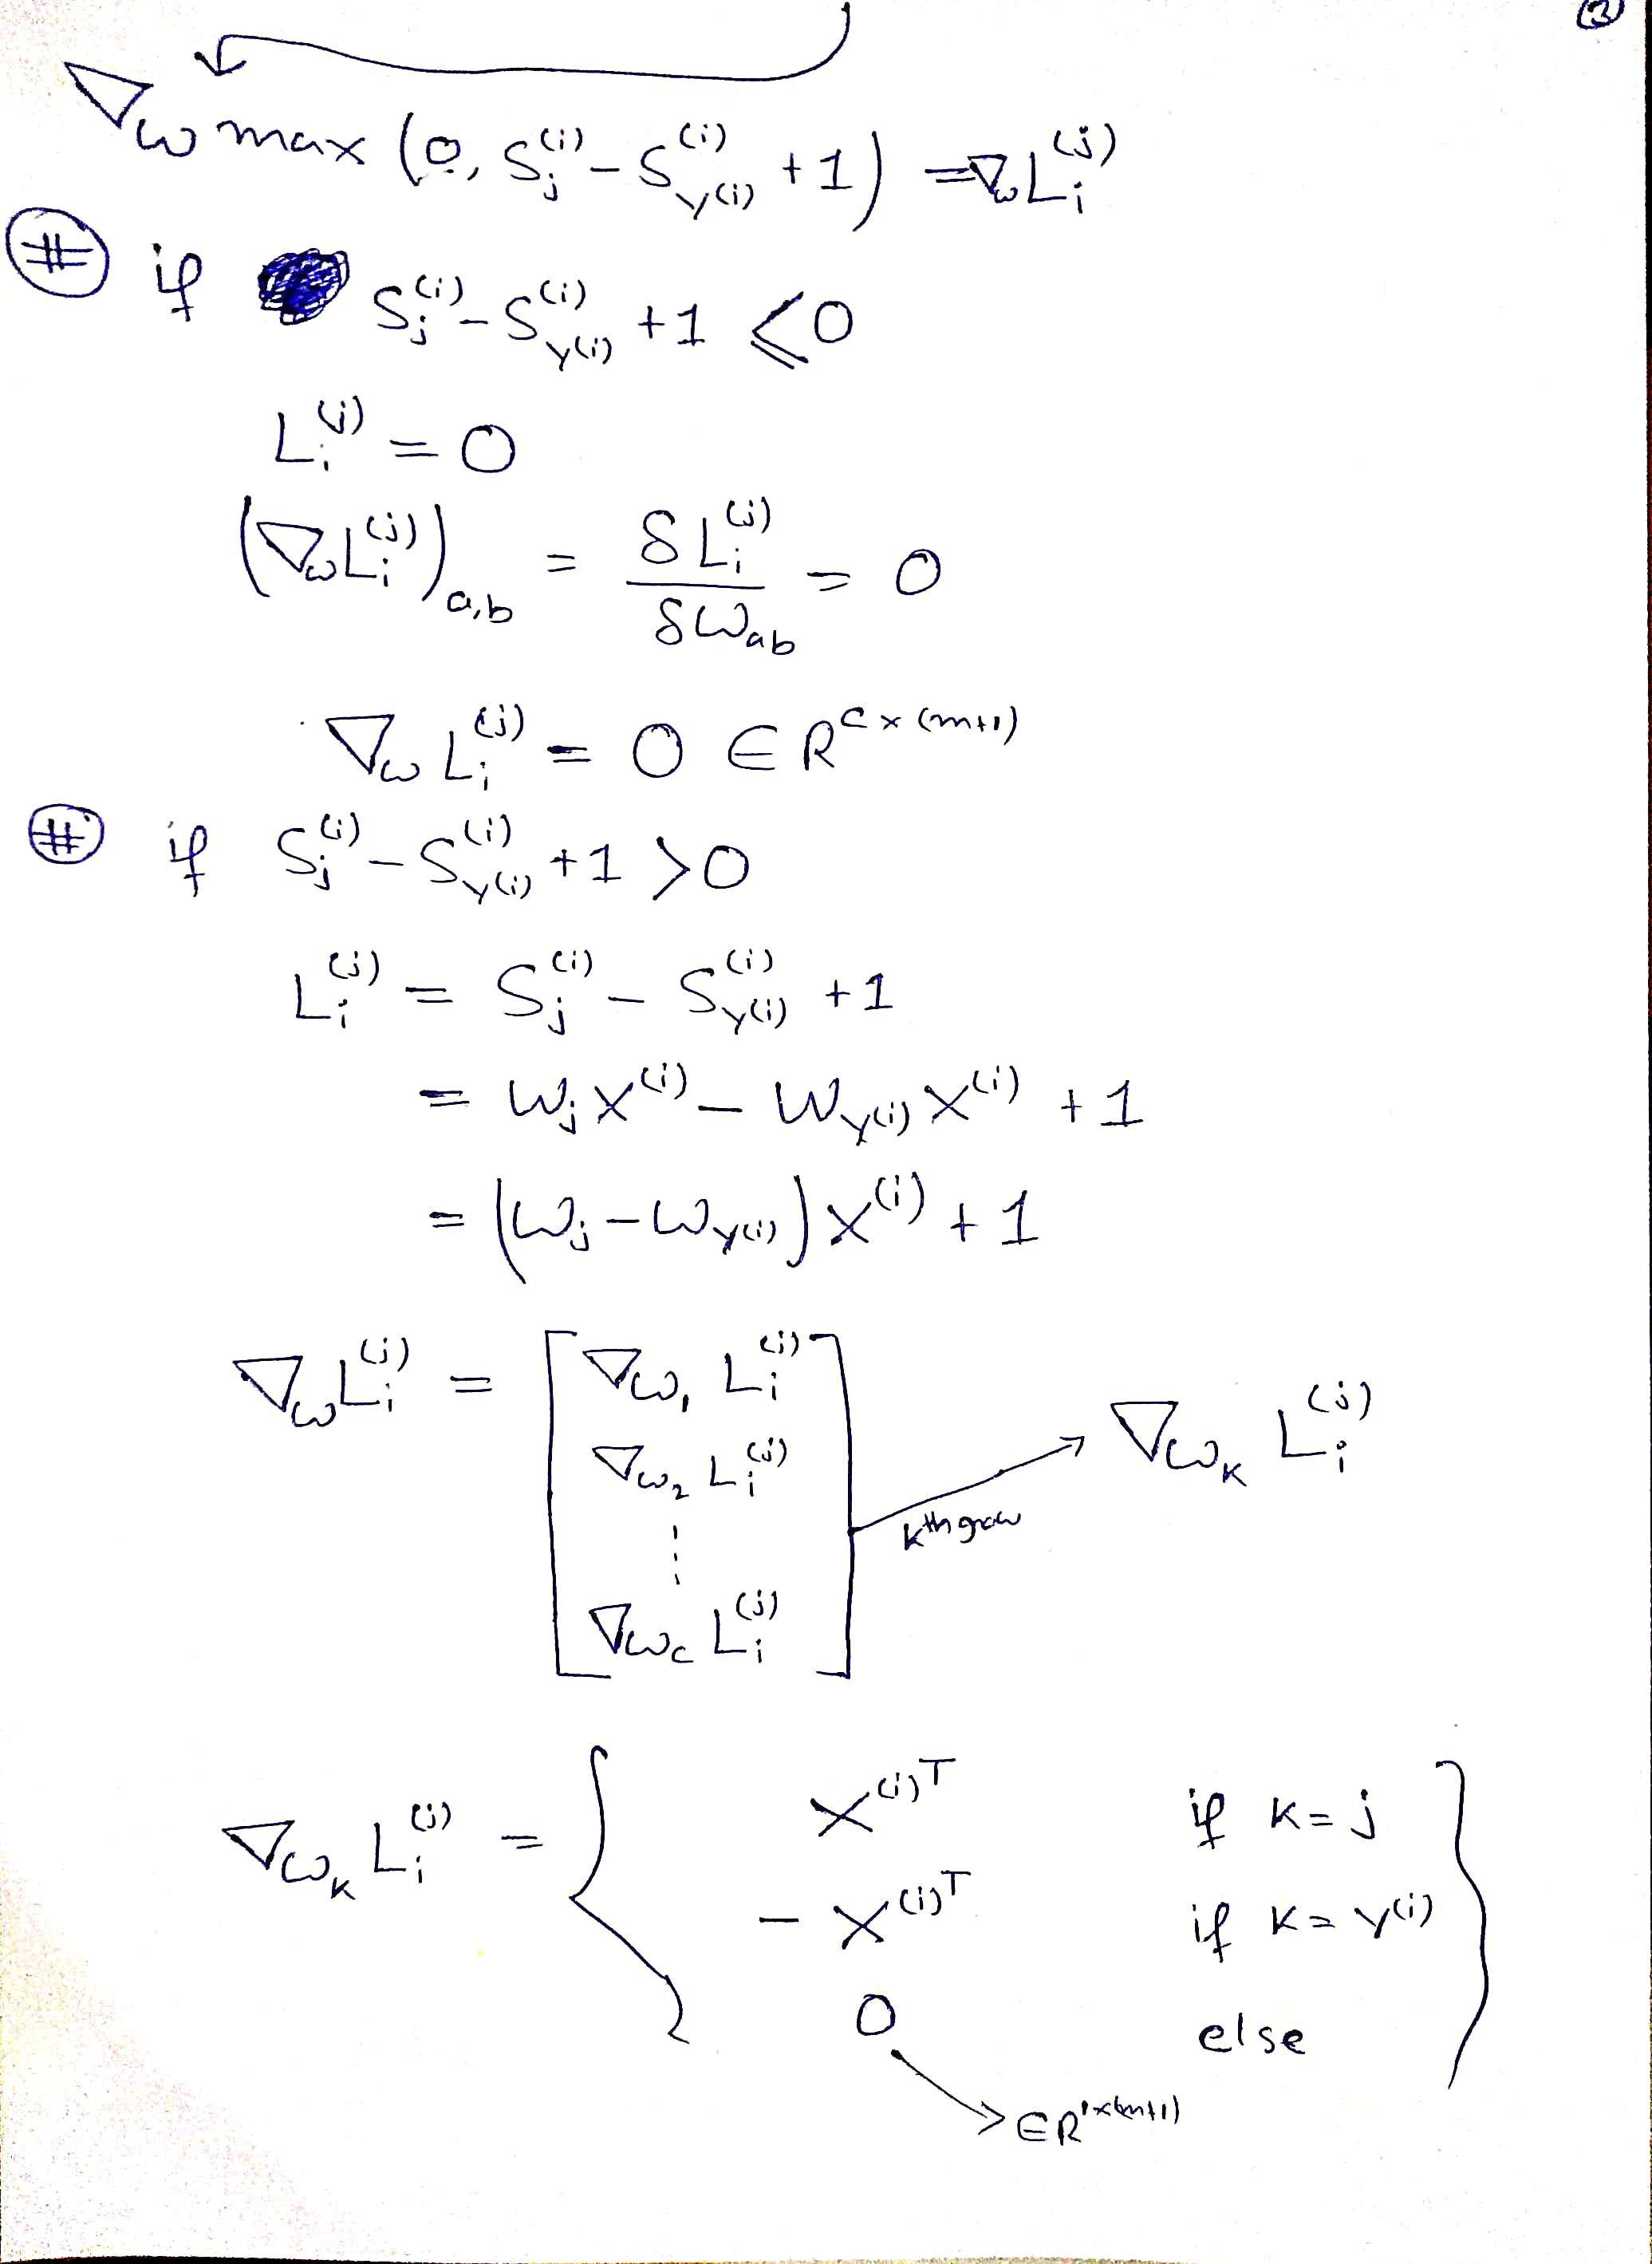 ②
∇_W max (0, S_j^(i) − S_{y(i)}^(i) + 1) = ∇_W L_i^(j)
# if S_j^(i) − S_{y(i)}^(i) + 1 ⩽ 0
L_i^(j) = 0
(∇_W L_i^(j))_{a,b} = δL_i^(j) / δW_{ab} = 0
∇_W L_i^(j) = 0 ∈ R^{C×(m+1)}
# if S_j^(i) − S_{y(i)}^(i) + 1 > 0
L_i^(j) = S_j^(i) − S_{y(i)}^(i) + 1
= W_j X^(i) − W_{y(i)} X^(i) + 1
= (W_j − W_{y(i)}) X^(i) + 1
∇_W L_i^(j) = [ ∇_{W_1} L_i^(j)
∇_{W_2} L_i^(j)
⋮
∇_{W_C} L_i^(j) ]
kth row → ∇_{W_K} L_i^(j)
∇_{W_K} L_i^(j) = { X^{(i)T} if K = j
− X^{(i)T} if K = y(i)
0 else }
→ ∈ R^{1×(m+1)}